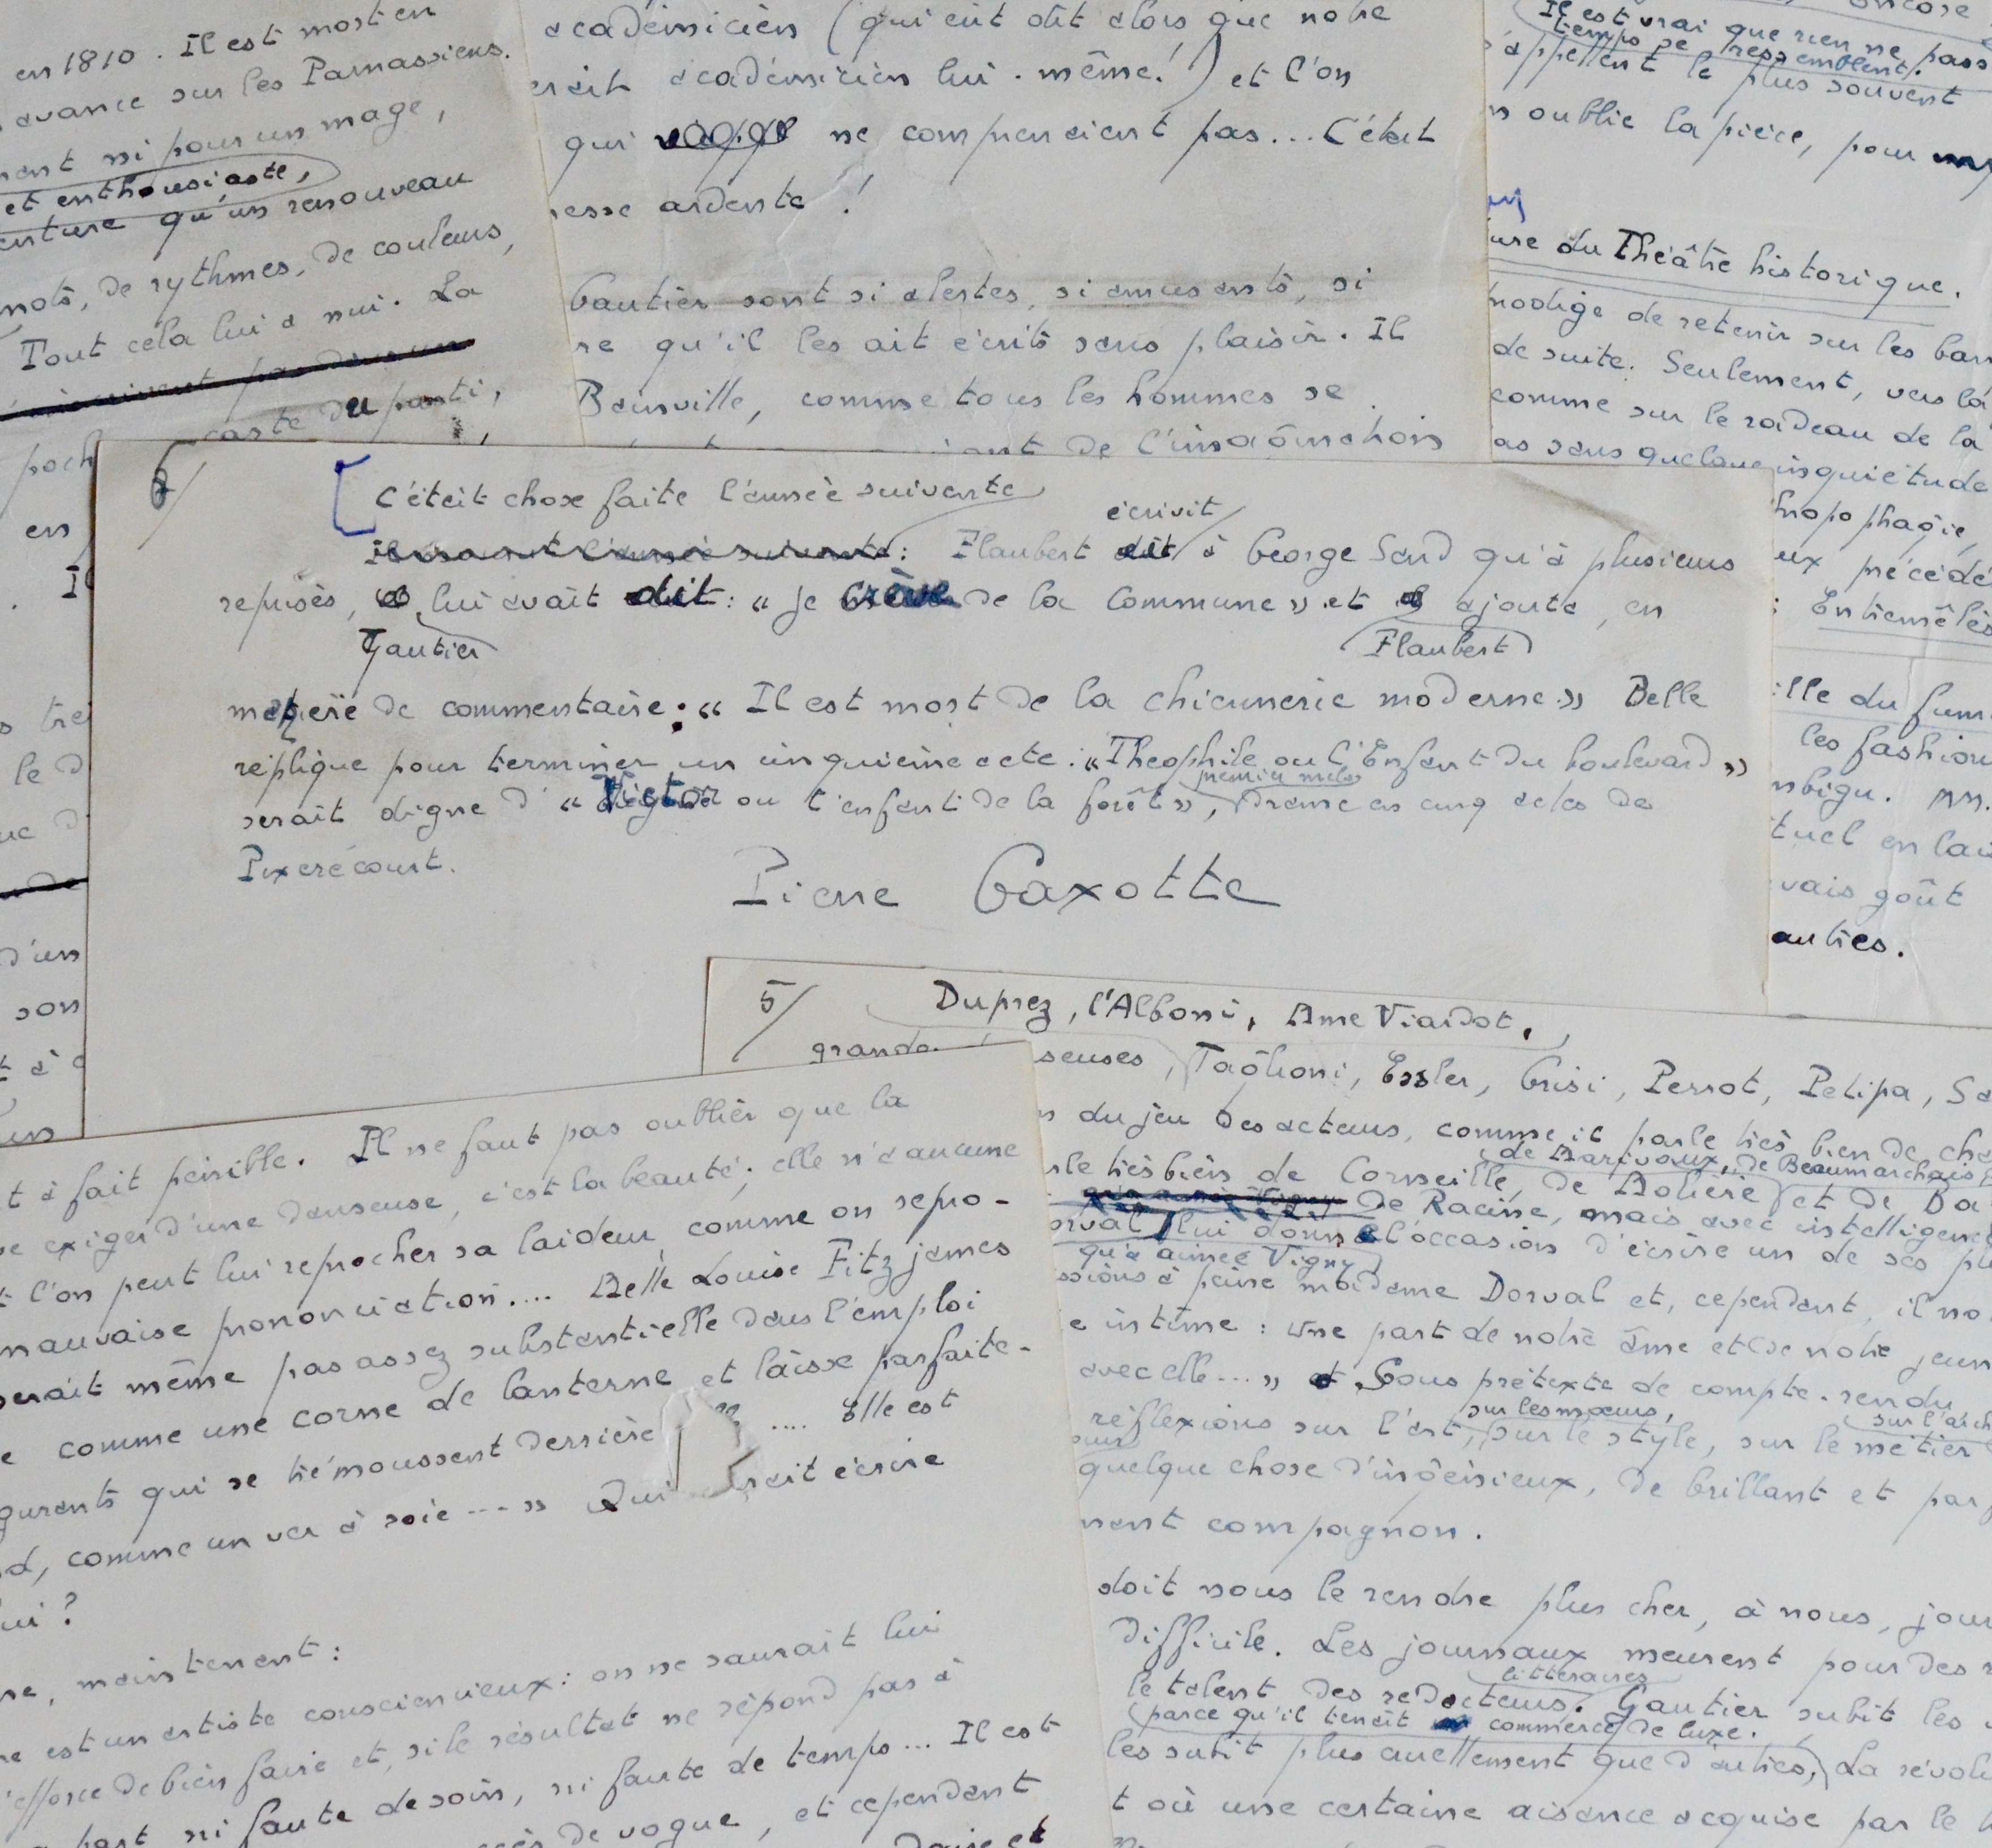 en 1810. Il est mort en
avance sur les Parnassiens.
ni pour un mage,
et enthousiaste,
qu'un renouveau
mots, de rythmes, de couleurs,
Tout cela lui a nui. La
caste du parti,
poch
en
Il
le d
d'un
son
t à
un
académicien (qui eût dit alors que notre
erait académicien lui-même!) et l'on
qui ne comprenaient pas... C'était
esse ardente !
Gautier sont si alertes, si amusants, si
re qu'il les ait écrits sans plaisir. Il
Bainville, comme tous les hommes se
de l'
encore
Il est vrai que rien ne pass
temps se ressemblent.
s'appellent le plus souvent
n oublie la pièce, pour
ure du Théâtre historique.
prodige de retenir sur les ban
de suite. Seulement, vers la
comme sur le radeau de la
as sans quelque inquiétude
hropophagie,
ux précéde
: Entremêlés
ille du fum
les fashion
mbigu. MM.
tuel en lai
vais goût
autres.
6/
C'était chose faite l'année suivante
écrivit
: Flaubert dit à George Sand qu'à plusieurs
reprises, lui avait dit : « Je crève de la Commune » et ajoute, en
Gautier
Flaubert
matière de commentaire : « Il est mort de la chiennerie moderne. » Belle
réplique pour terminer un cinquième acte : « Théophile ou l'Enfant du boulevard »
premier mélo
serait digne d' « Victor ou l'enfant de la forêt », drame en cinq actes de
Pixerécourt.
Pierre Gaxotte
5/
Duprez, l'Alboni, Mme Viardot,
grande seuses, Taglioni, Essler, Grisi, Perrot, Petipa, Sa
n du jeu des acteurs, comme il parle très bien de cho
de Marivaux, de Beaumarchais,
rle très bien de Corneille, de Molière et de Ba
de Racine, mais avec intelligence
orval lui donne l'occasion d'écrire un de ses pl
qu'a aimée Vigny
ssions à peine madame Dorval et, cependant, il no
e intime : une part de notre âme et de notre jeun
avec elle... » Sous prétexte de compte-rendu
sur les mœurs,
sur l'arch
réflexions sur l'art, sur le style, sur le métier
quelque chose d'ingénieux, de brillant et parf
nant compagnon.
doit nous le rendre plus cher, à nous, jour
difficile. Les journaux meurent pour des r
littéraires
le talent des rédacteurs. Gautier subit les
parce qu'il tenait commerce de luxe.
les subit plus cruellement que d'autres, La révolu
t où une certaine aisance acquise par le
t à fait pénible. Il ne faut pas oublier que la
se exiger d'une danseuse, c'est la beauté ; elle n'a aucune
t l'on peut lui reprocher sa laideur, comme on repro-
mauvaise prononciation.... Melle Louise Fitzjames
serait même pas assez substantielle dans l'emploi
e comme une corne de lanterne et laisse parfaite-
gurants qui se trémoussent derrière .... Elle est
d, comme un ver à soie ---» Qui rait écrire
ui ?
ne, maintenant :
ne est un artiste consciencieux : on ne saurait lui
s'efforce de bien faire et, si le résultat ne répond pas à
part ni faute de soin, ni faute de temps... Il est
de vogue, et cependant